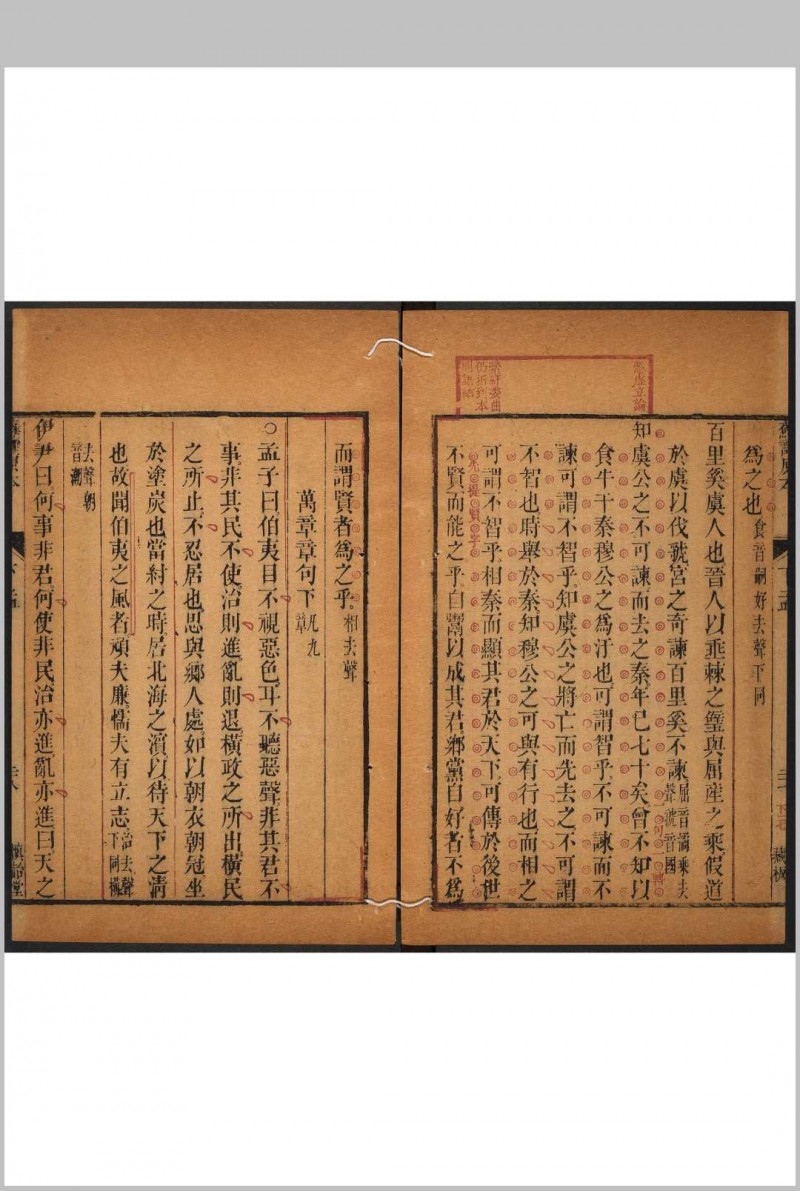 為之也食音嗣好去聲下同
百里奚虞人也晉人以垂棘之璧與屈產之乘假道
於虞以伐虢宮之奇諫百里奚不諫屈音橘乘去聲虢音國
知虞公之不可諫而去之秦年已七十矣曾不知以
食牛干秦穆公之為汙也可謂智乎不可諫而不
諫可謂不智乎知虞公之將亡而先去之不可謂
不智也時舉於秦知穆公之可與有行也而相之
可謂不智乎相秦而顯其君於天下可傳於後世
不賢而能之乎自鬻以成其君鄉黨自好者不為
而謂賢者為之乎相去聲
萬章章句下凡九章
○孟子曰伯夷目不視惡色耳不聽惡聲非其君不
事非其民不使治則進亂則退橫政之所出橫民
之所止不忍居也思與鄉人處如以朝衣朝冠坐
於塗炭也當紂之時居北海之濱以待天下之清
也故聞伯夷之風者頑夫廉懦夫有立志治去聲下同橫
去聲朝音潮
伊尹曰何事非君何使非民治亦進亂亦進曰天之
下孟